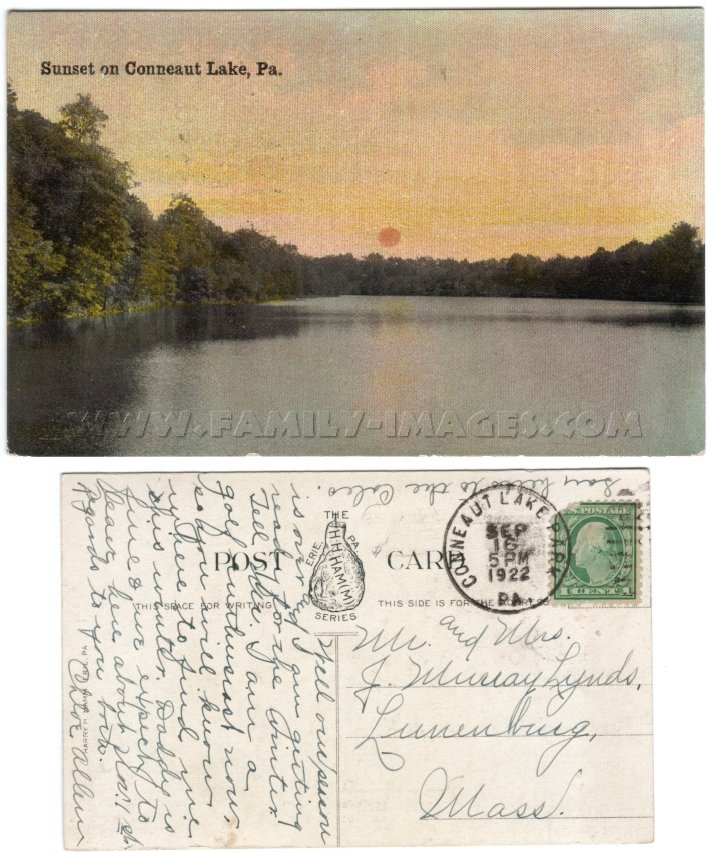 Sunset on Conneaut Lake, Pa.
WWW.FAMILY-IMAGES.COM
Say hello to the
CONNEAUT LAKE PARK
SEP
16
5 PM
1922
PA.
U.S. POSTAGE
1 CENT 1
THE
H.H. HAMM
ERIE PA
SERIES
POST CARD
THIS SPACE FOR WRITING
THIS SIDE IS FOR THE ADDRESS
Mr. and Mrs.
J. Murray Lynds,
Lunenburg,
Mass.
Well our season
is over &
you getting
ready for the winter
Tell Mr. I am a
golf enthusiast now.
so you will know
where to find me
this winter. Daddy is
fine & we expect to
leave here about Nov. 1st.
Regards to you both.
Allen
HARRY H. HAMM, ERIE, PA.